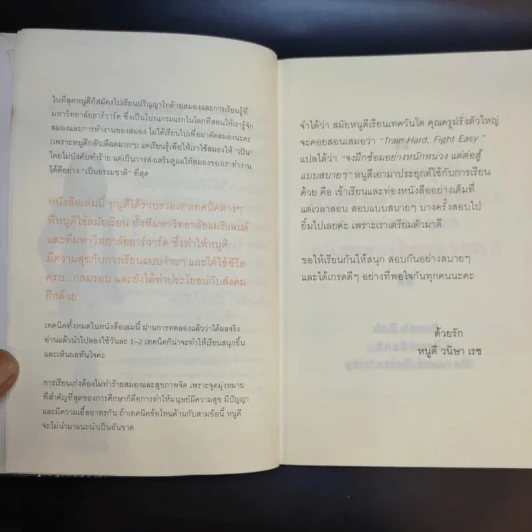 ในที่สุดหนูดีก็สมัครไปเรียนปริญญาโทด้านสมองและการเรียนรู้ที่
มหาวิทยาลัยฮาร์วาร์ด ซึ่งเป็นโปรแกรมแรกในโลกที่สอนให้เรารู้จัก
สมองและการทำงานของสมอง ไม่ได้เรียนไปเพื่อผ่าตัดสมองนะคะ
(เพราะหนูดีกลัวเลือดมากๆ) แต่เรียนรู้เพื่อให้เราใช้สมองให้ "เป็น"
โดยไม่บังคับทำร้าย แต่เป็นการส่งเสริมดูแลให้สมองของเราทำงาน
ได้อย่าง "เป็นธรรมชาติ" ที่สุด
หนังสือเล่มนี้ หนูดีได้รวบรวมเอาเทคนิคต่างๆ
ที่หนูดีใช้สมัยเรียน ทั้งที่มหาวิทยาลัยแมริแลนด์
และที่มหาวิทยาลัยฮาร์วาร์ด ซึ่งทำให้หนูดี
มีความสุขกับการเรียนแบบง่ายๆ และได้ใช้ชีวิต
ครบ...กลมรอบ และยังได้ทำประโยชน์กับสังคม
อีกด้วย
เทคนิคทั้งหมดในหนังสือเล่มนี้ ผ่านการทดลองแล้วว่าได้ผลจริง
อ่านแล้วนำไปลองใช้วันละ 1-2 เทคนิคก็น่าจะทำให้เรียนสนุกขึ้น
และเห็นผลทันใจค่ะ
การเรียนเก่งต้องไม่ทำร้ายสมองและสุขภาพจิต เพราะจุดมุ่งหมาย
ที่สำคัญที่สุดของการศึกษาก็คือการทำให้มนุษย์มีความสุข มีปัญญา
และมีความเอื้ออาทรกัน ถ้าเทคนิคข้อไหนค้านกับสามข้อนี้ หนูดี
จะไม่นำมาแนะนำเป็นอันขาด
จำได้ว่า สมัยหนูดีเรียนเทควันโด คุณครูฝรั่งตัวใหญ่
จะคอยสอนเสมอว่า "Train Hard, Fight Easy."
แปลได้ว่า "จงฝึกซ้อมอย่างหนักหน่วง แต่ต่อสู้
แบบสบายๆ" หนูดีเอามาประยุกต์ใช้กับการเรียน
ด้วย คือ เข้าเรียนและท่องหนังสืออย่างเต็มที่
แต่เวลาสอบ สอบแบบสบายๆ บางครั้งสอบไป
ยิ้มไปเลยค่ะ เพราะเราเตรียมตัวมาดี
ขอให้เรียนกันให้สนุก สอบกันอย่างสบายๆ
และได้เกรดดีๆ อย่างที่พอใจกันทุกคนนะคะ
ด้วยรัก
หนูดี วนิษา เรซ